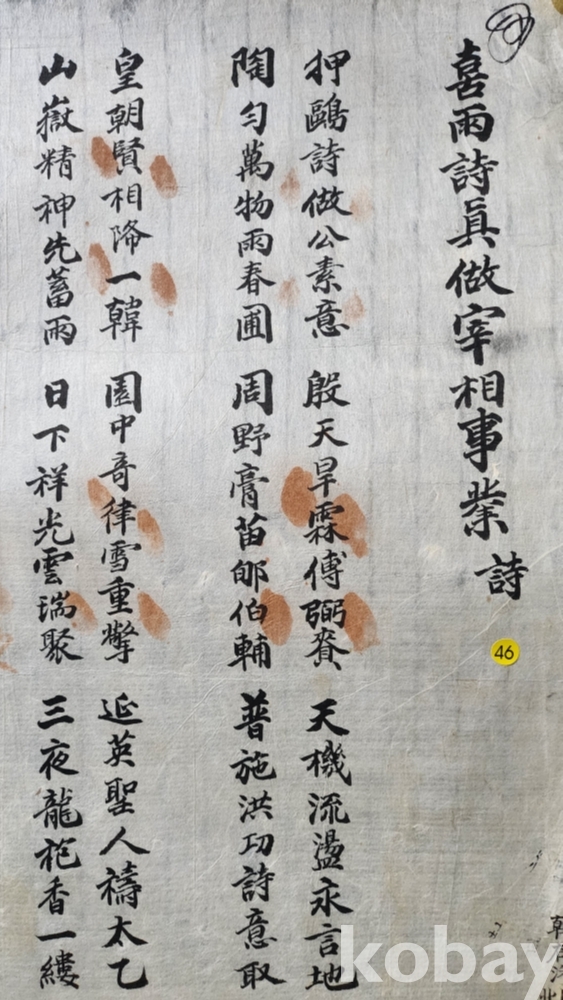 喜雨詩真做宰相事業 詩
押鷗詩做公素意 殷天旱霖傅弼賚 天機流盪永言地
陶勻萬物雨春圃 周野膏苗郇伯輔 普施洪功詩意取
皇朝賢相降一韓 園中奇律雪重擎 延英聖人禱太乙
山嶽精神先蓄雨 日下祥光雲瑞聚 三夜龍袍香一縷
46
kobay